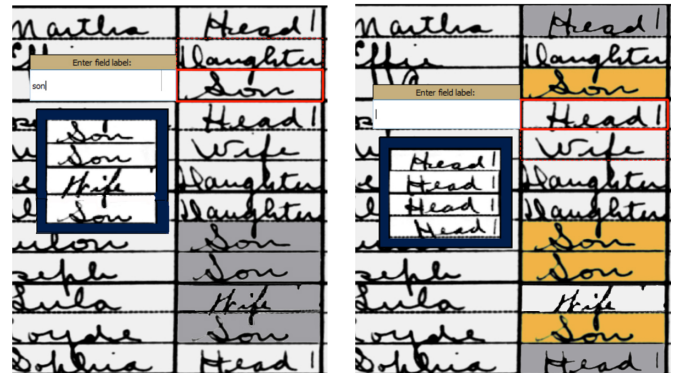 Martha Head 1
Daughter
Enter field label:
son
Son
Son
Son
Wife
Son
Head 1
Wife
Daughter
Daughter
Son
seph Son
Lula Wife
Son
Head 1
Martha Head 1
Effie Daughter
Son
Enter field label:
Head 1
Head 1
Head 1
Head 1
Head 1
Wife
Daughter
Daughter
Son
seph Son
Lula Wife
Son
Head 1